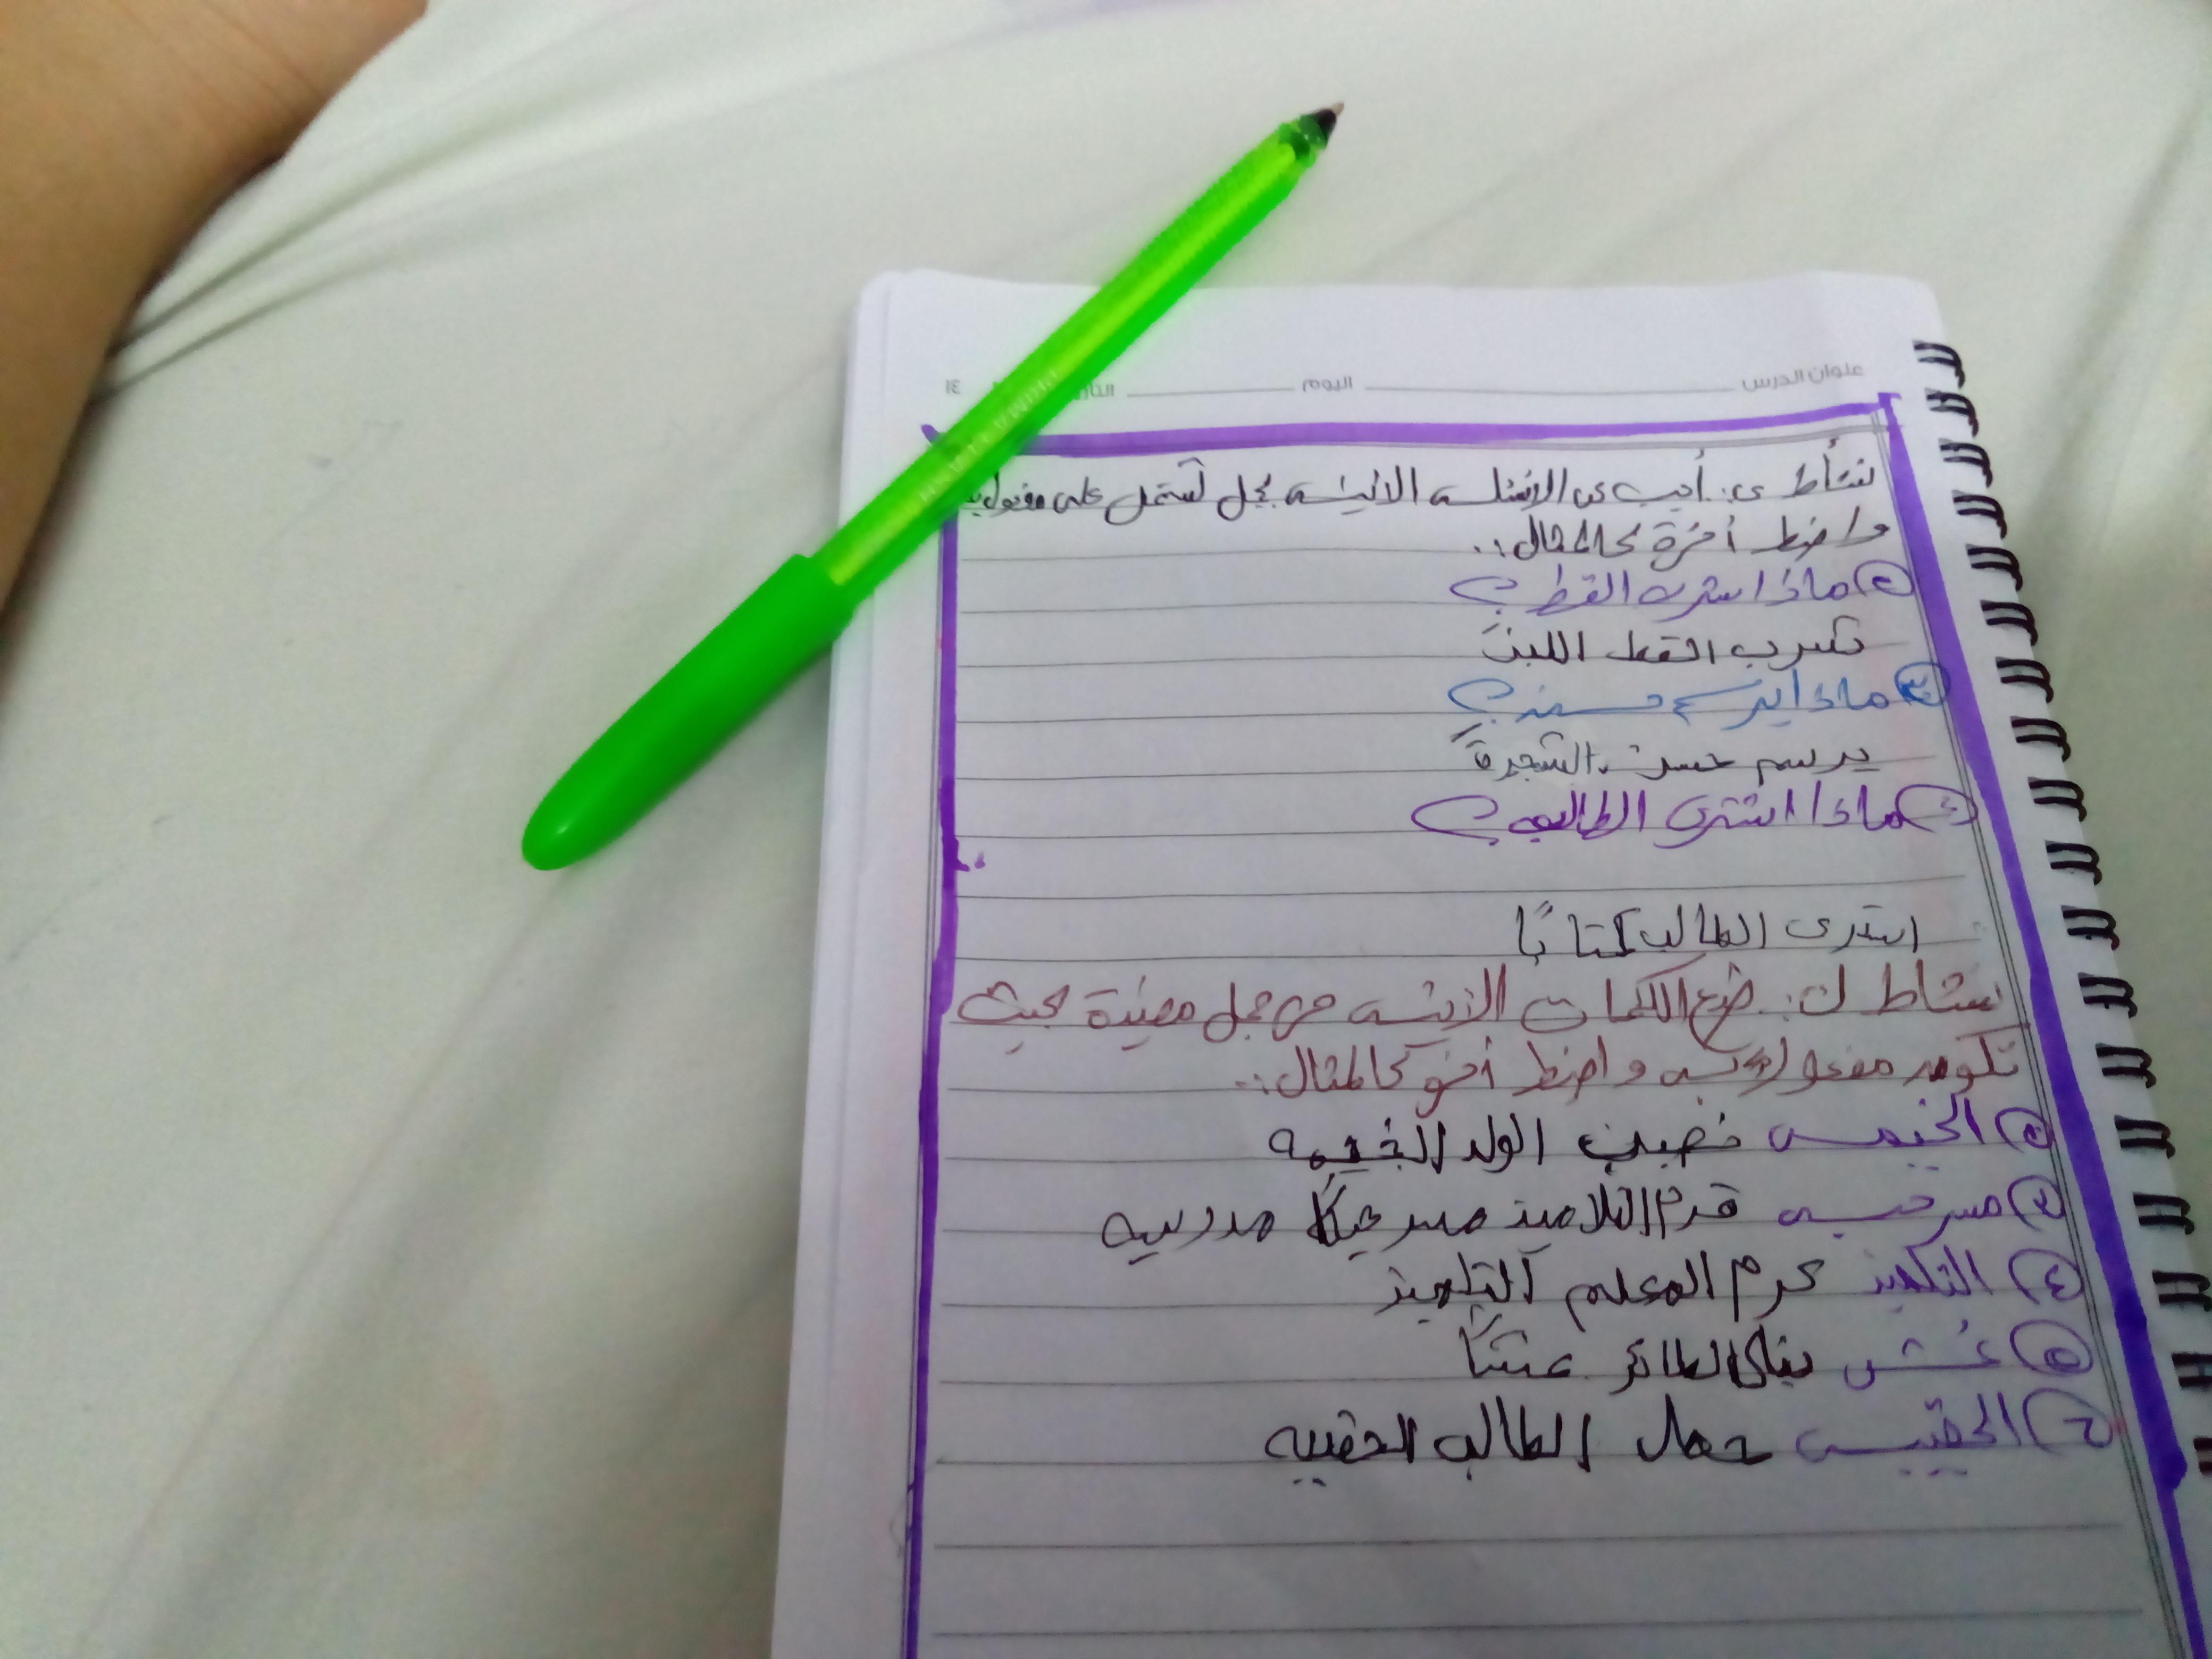 عنوان الدرس اليوم التار ١٤
نشأط ى: أجيب عن الأسئلة الآتية بجمل تشتمل على مفعول به
واضبط أخرة كالمثال:.
٢ ماذا اشرب القط؟
تشرب القط اللبنَ
٣ ماذا يرسم حسن؟
يرسم حسن الشجرةً
٤ ماذا اشترى الطالب؟
اشترى الطالب كتابًا
نشاط ك: ضع الكلمات الآتية في جمل مفيدة بحيث
تكون مفعولا به واضبط أخره كالمثال:.
٢ الخيمة نصب الولد الخيمه
٣ مسرحية قدم التلاميذ مسرحيةً مدرسيه
٤ التلميذ كرم المعلم التلميذ
٥ عُش بنى الطائر عشًا
٦ الحقيبة حمل الطالب الحقيبه